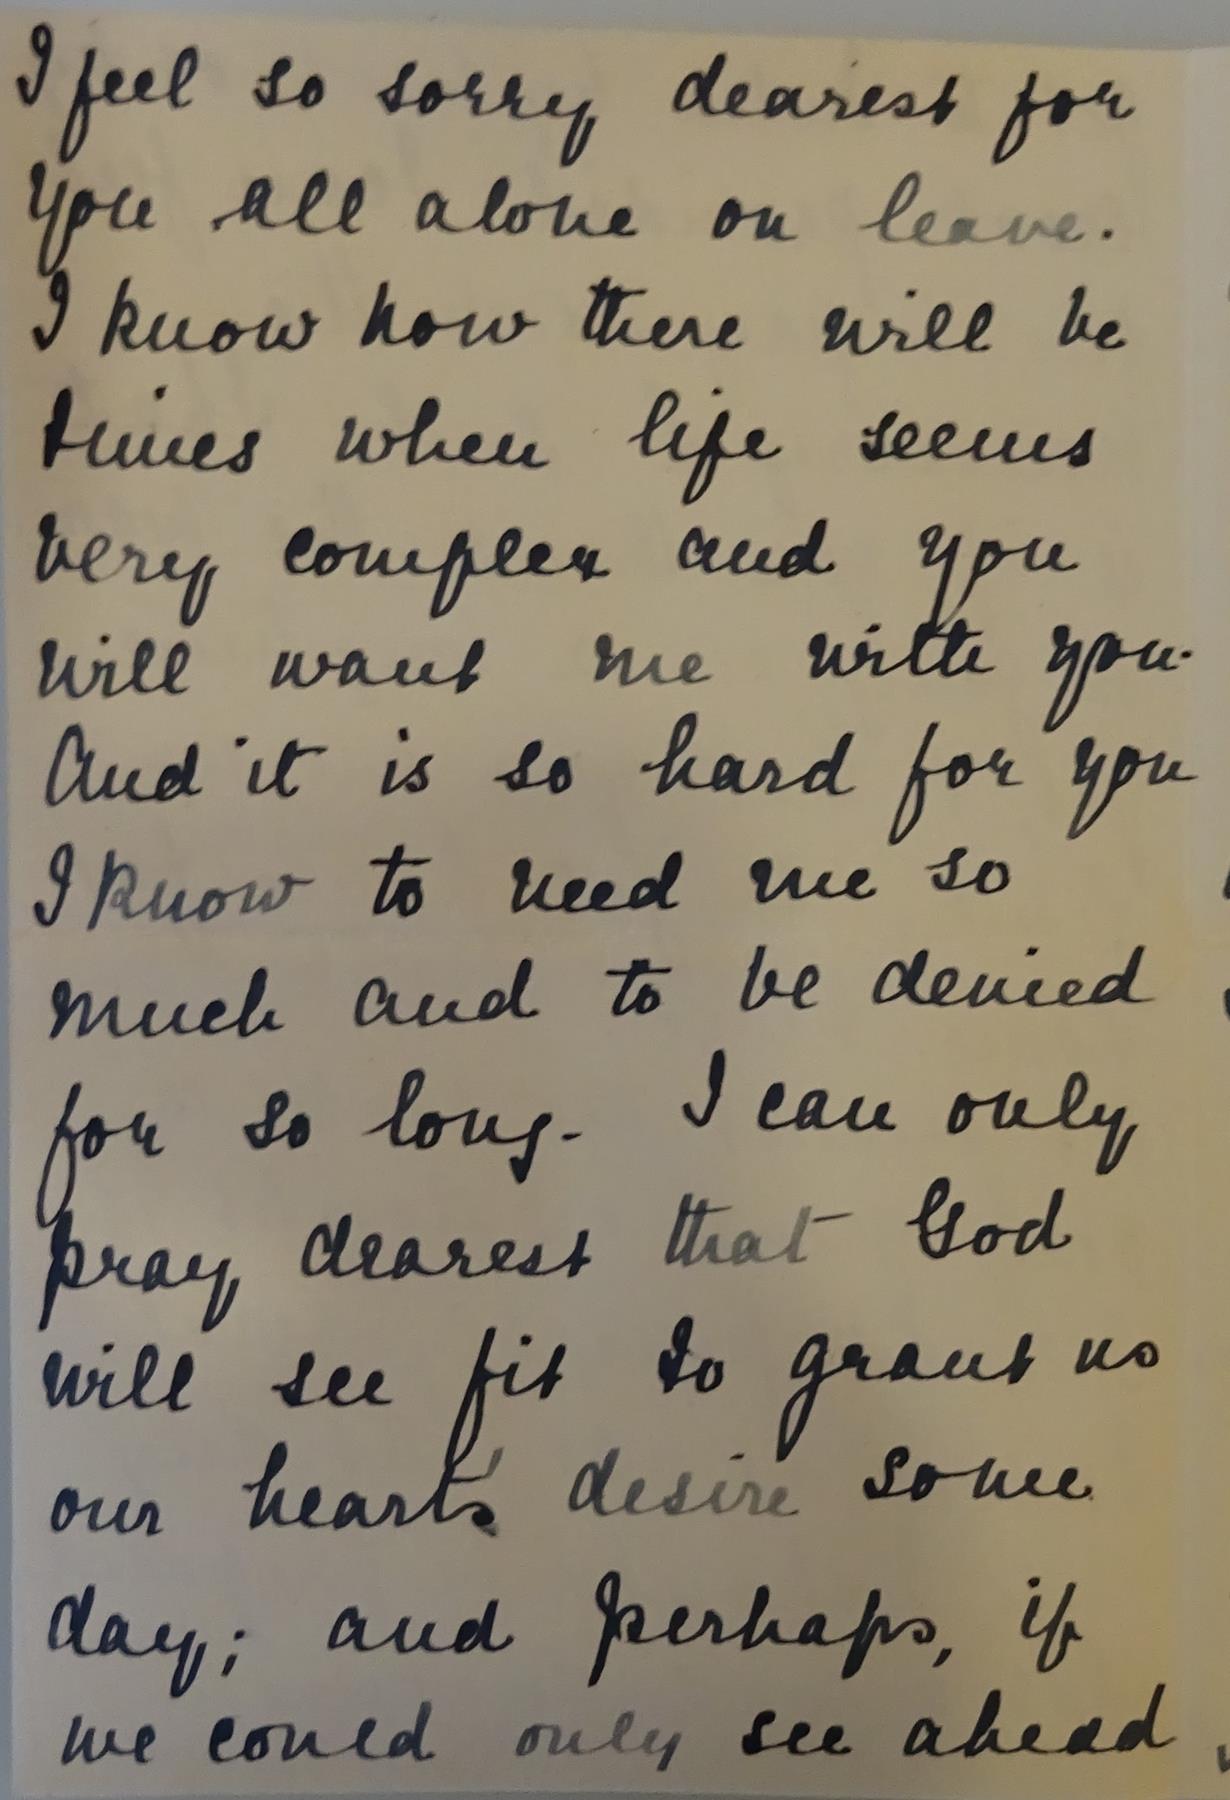 I feel so sorry dearest for
you all alone on leave.
I know how there will be
times when life seems
very complex and you
will want me with you.
And it is so hard for you
I know to need me so
much and to be denied
for so long. I can only
pray dearest that God
will see fit to grant us
our heart's desire some
day; and perhaps, if
we could only see ahead